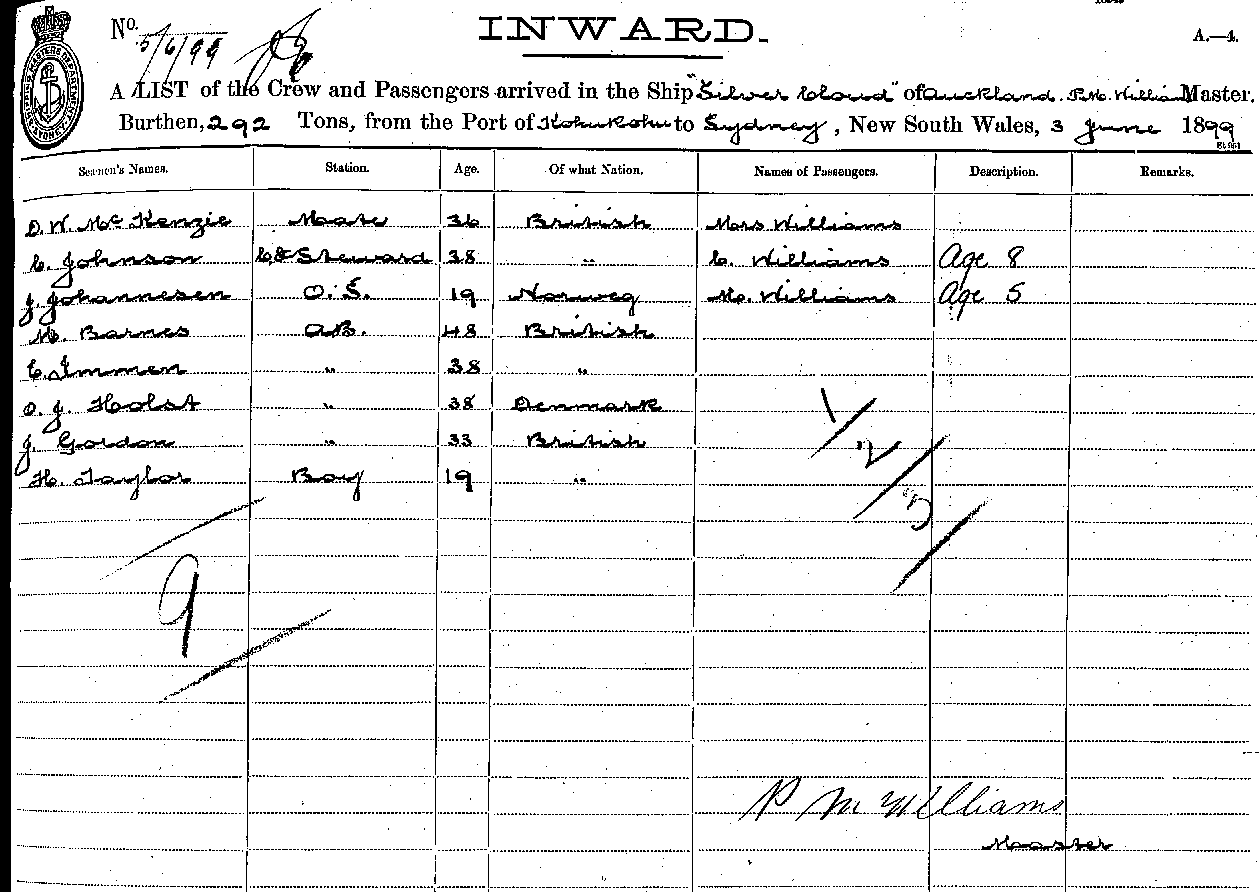 No. 5/6/99
INWARD.
A.—4.
SHIPPING MASTERS DEPARTMENT SYDNEY
A LIST of the Crew and Passengers arrived in the Ship "Silver Cloud" of Auckland. P.M. Williams Master.
Burthen, 292 Tons, from the Port of Kohukohu to Sydney, New South Wales, 3 June 1899
Seamen's Names. Station. Age. Of what Nation. Names of Passengers. Description. Remarks.
D. W. McKenzie Mate 36 British Mrs Williams
C. Johnson C & Steward 38 " C. Williams Age 8
J. Johannesen O.S. 19 Norweg M. Williams Age 5
M. Barnes AB. 48 British
C. Immen " 38 "
O. J. Holst " 38 Denmark
J. Gordon " 33 British
H. Taylor Boy 19 "
1/2/3
9
P M Williams
Master